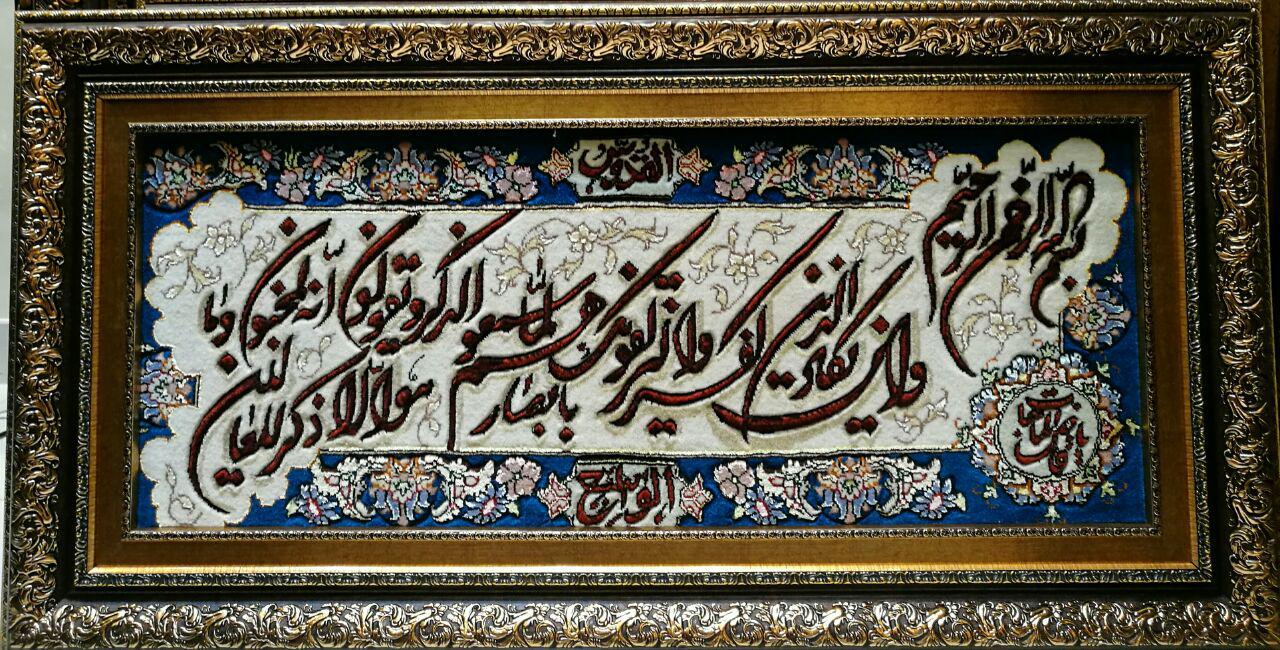 بسم الله الرحمن الرحیم
القدوس
وان یکاد الذین کفروا لیزلقونک بابصارهم لما سمعوا الذکر ویقولون انه لمجنون وما هو الا ذکر للعالمین
الواسع
یا قاضی الحاجات